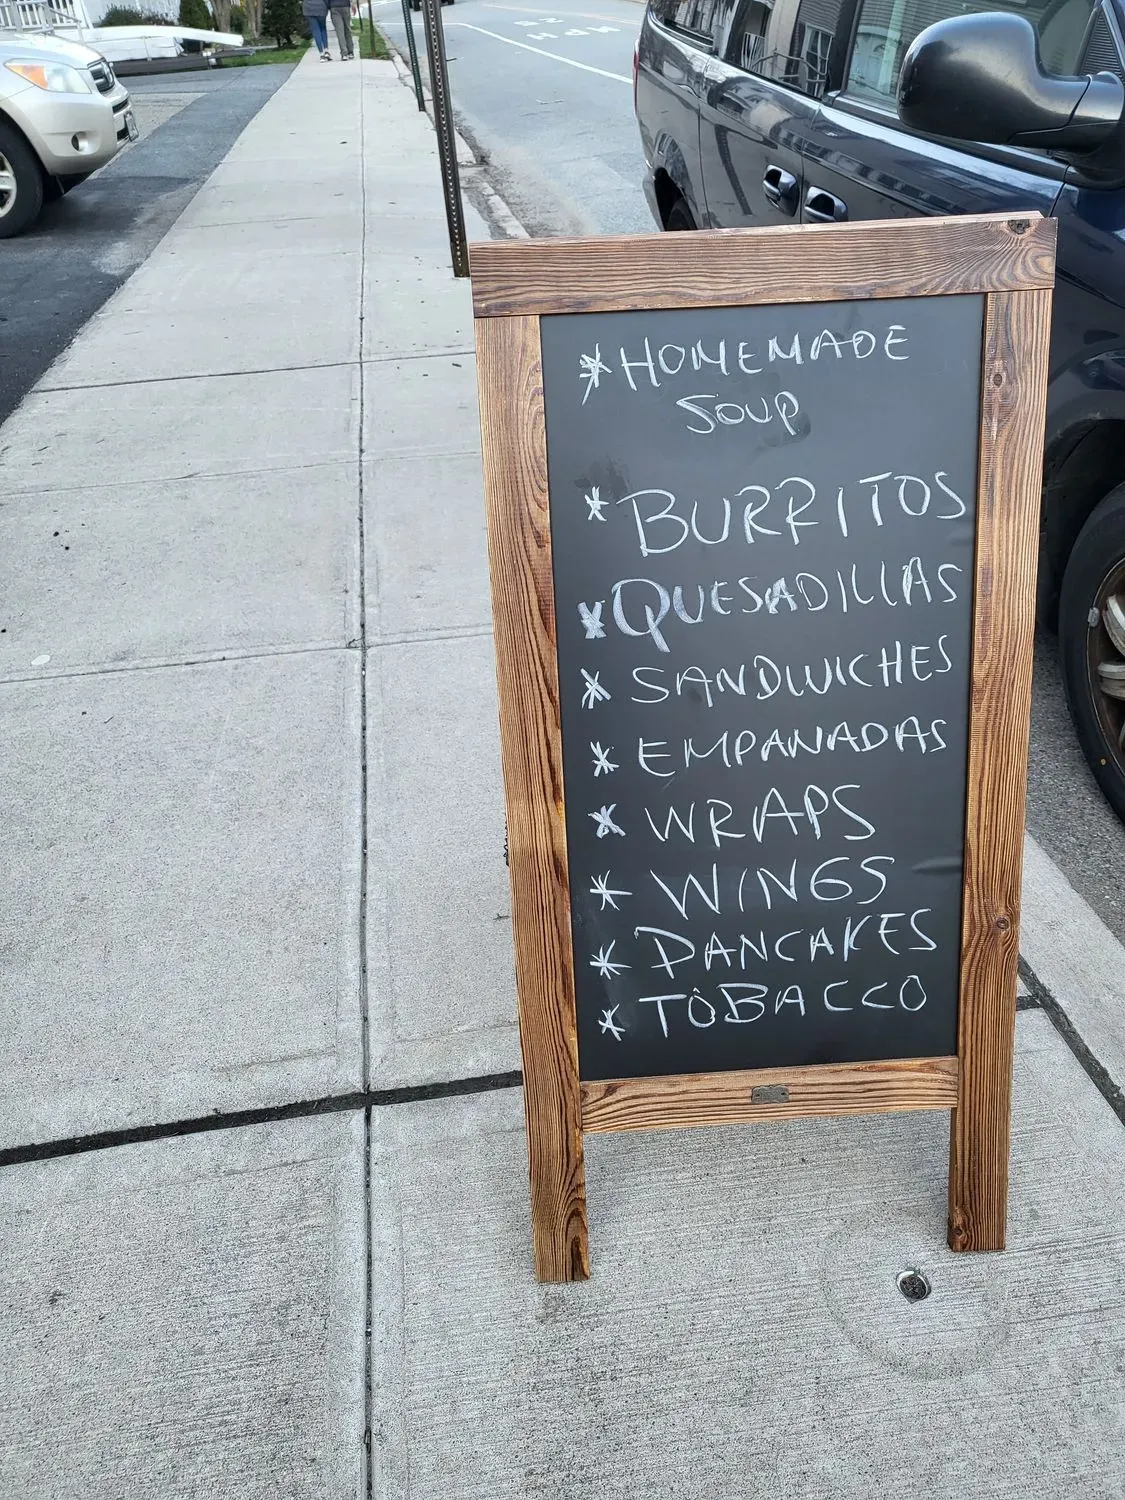 * HOMEMADE
SOUP
* BURRITOS
* QUESADILLAS
* SANDWICHES
* EMPANADAS
* WRAPS
* WINGS
* PANCAKES
* TOBACCO